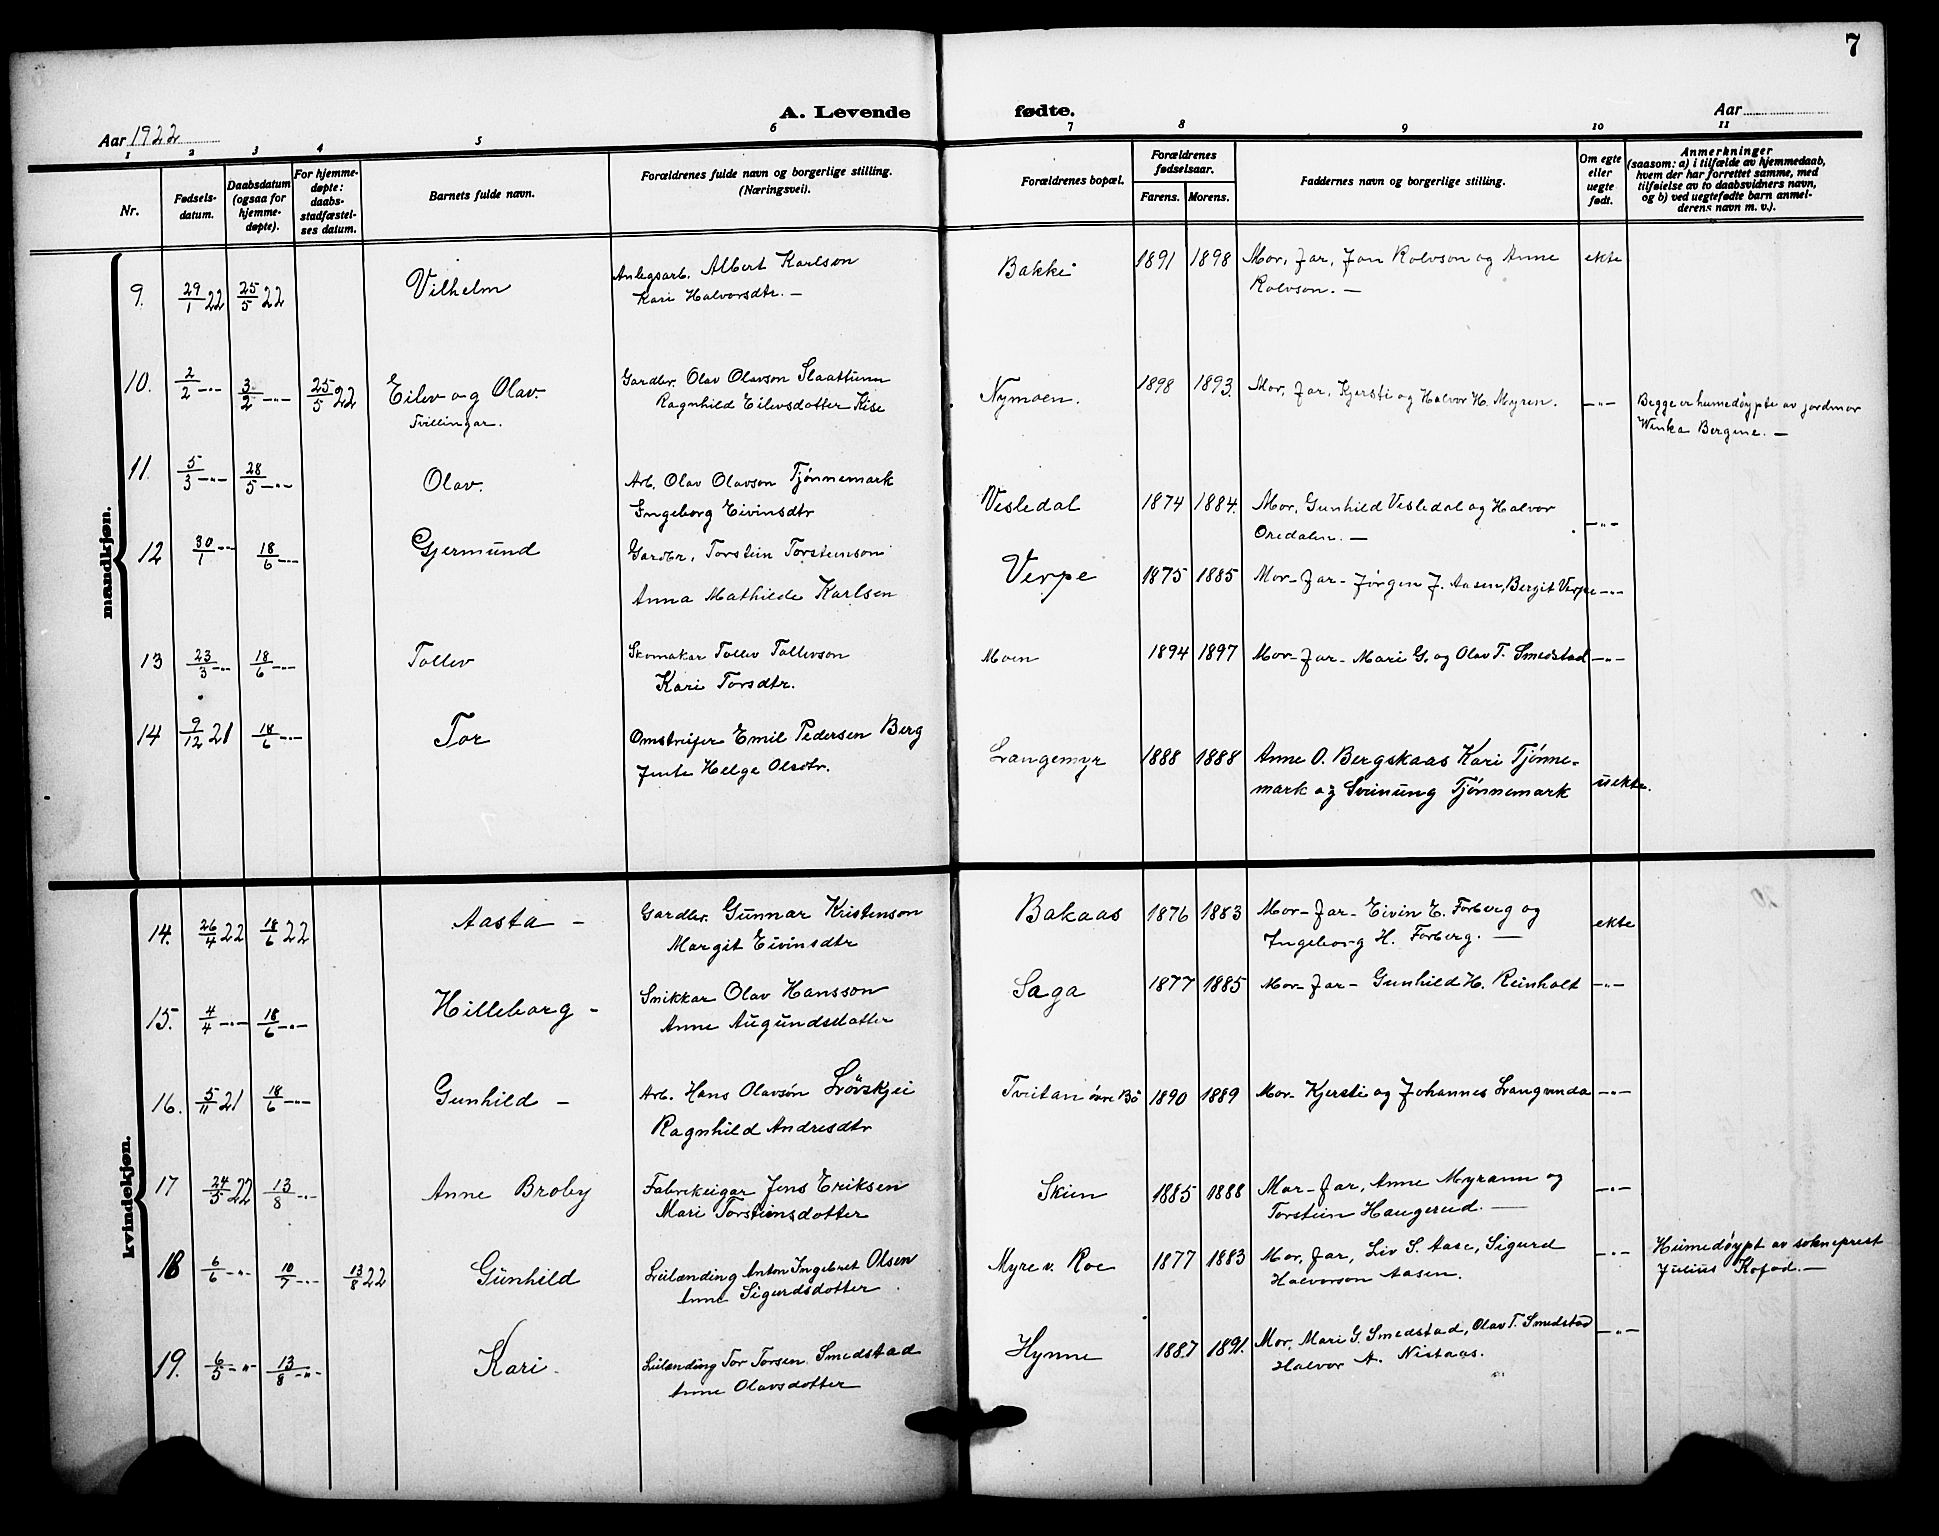 7
A. Levende fødte.
Aar 1922
Aar
1 2 3 4 5 6 7 8 9 10 11
Nr.
Fødsels-
datum.
Daabsdatum
(ogsaa for
hjemme-
døpte).
For hjemme-
døpte:
daabs-
stadfæstel-
ses datum.
Barnets fulde navn.
Forældrenes fulde navn og borgerlige stilling.
(Næringsvei).
Forældrenes bopæl.
Forældrenes
fødselsaar.
Farens. Morens.
Faddernes navn og borgerlige stilling.
Om egte
eller
uegte
født.
Anmerkninger
(saasom: a) i tilfælde av hjemmedaab,
hvem der har forrettet samme, med
tilføielse av to daabsvidners navn,
og b) ved uegtefødte barn anmel-
derens navn m. v.).
mandkjøn.
9. 29/1 22 25/5 22 Vilhelm Anlegsarb. Albert Karlson Bakke 1891 1898 Mor, Far, Jon Rolvson og Anne ekte
Kari Halvorsdtr. — Rolvson. —
10. 2/2 -"- 3/2 -"- 25/5 22 Eilev og Olav. Gardbr. Olav Olavson Slaattunn Nymoen. 1898 1893. Mor, Far, Kjersti og Halvor H. Myren. -"- Begge er heimedøypte av jordmor
Tvillingar. Ragnhild Eilevsdotter Kise Bergene. —
11. 5/3 -"- 28/5 -"- Olav. Arb. Olav Olavson Tjønnemark Vesledal 1874 1884. Mor, Gunhild Vesledal og Halvor
Ingeborg Eivinsdtr Oredalen. — -"-
12 30/1 -"- 18/6 -"- Gjermund Gardbr. Torstein Torsteinson Verpe 1875 1885 Mor- Far- Jørgen J. Aasen, Bergit Verpe -"-
Anna Mathilde Karlsen
13 23/3 -"- 18/6 -"- Tollev Skomakar Tollev Tollevson Moen 1894 1897 Mor- Far- Mari G. og Olav T. Smedstad -"-
Kari Torsdtr.
14 9/12 21 18/6 -"- Tor Omstreifer Emil Pedersen Berg Langemyr 1888 1888 Anne O. Bergskaas Kari Tjønne-
Jente Helge Olsdtr. mark og Sveinung Tjønnemark uekte.
kvindekjøn.
14. 26/4 22 18/6 22 Aasta - Gardbr. Gunnar Kristenson Bakaas 1876 1883 Mor- Far- Eivin E. Forberg og ekte
Margit Eivinsdtr Ingeborg H. Forberg. —
15. 4/4 -"- 18/6 -"- Hilleborg - Snikkar Olav Hansson Saga 1877 1885 Mor- Far- Gunhild H. Reinholt -"-
Anne Augundsdotter
16. 5/11 21 18/6 -"- Gunhild - Arb. Hans Olavson Lövskjei Tveitan övre Bö 1890 1889 Mor- Kjersti og Johannes Langvnda -"-
Ragnhild Andresdtr
17 24/5 22 13/8 -"- Anne Broby Fabrikeigar Jens Eriksen Skien 1885 1888 Mor- Far, Anne Myrann og -"-
Mari Torsteinsdotter Torstein Haugerud. —
18 6/6 -"- 10/7 -"- 13/8 22 Gunhild Leilending Anton Ingebret Olsen Myre v. Roe 1877 1883 Mor, Far, Liv S. Aase, Sigurd -"- Heimedøypt av sokneprest
Anne Sigurdsdotter Halvorson Aasen. Julius Kofod. —
19. 6/5 -"- 13/8 -"- Kari. Leilending Tor Torsen Smedstad Hynne 1887 1891. Mor, Mari G. Smedstad, Olav T. Smedstad -"-
Anne Olavsdotter Halvor A. Nistaas.